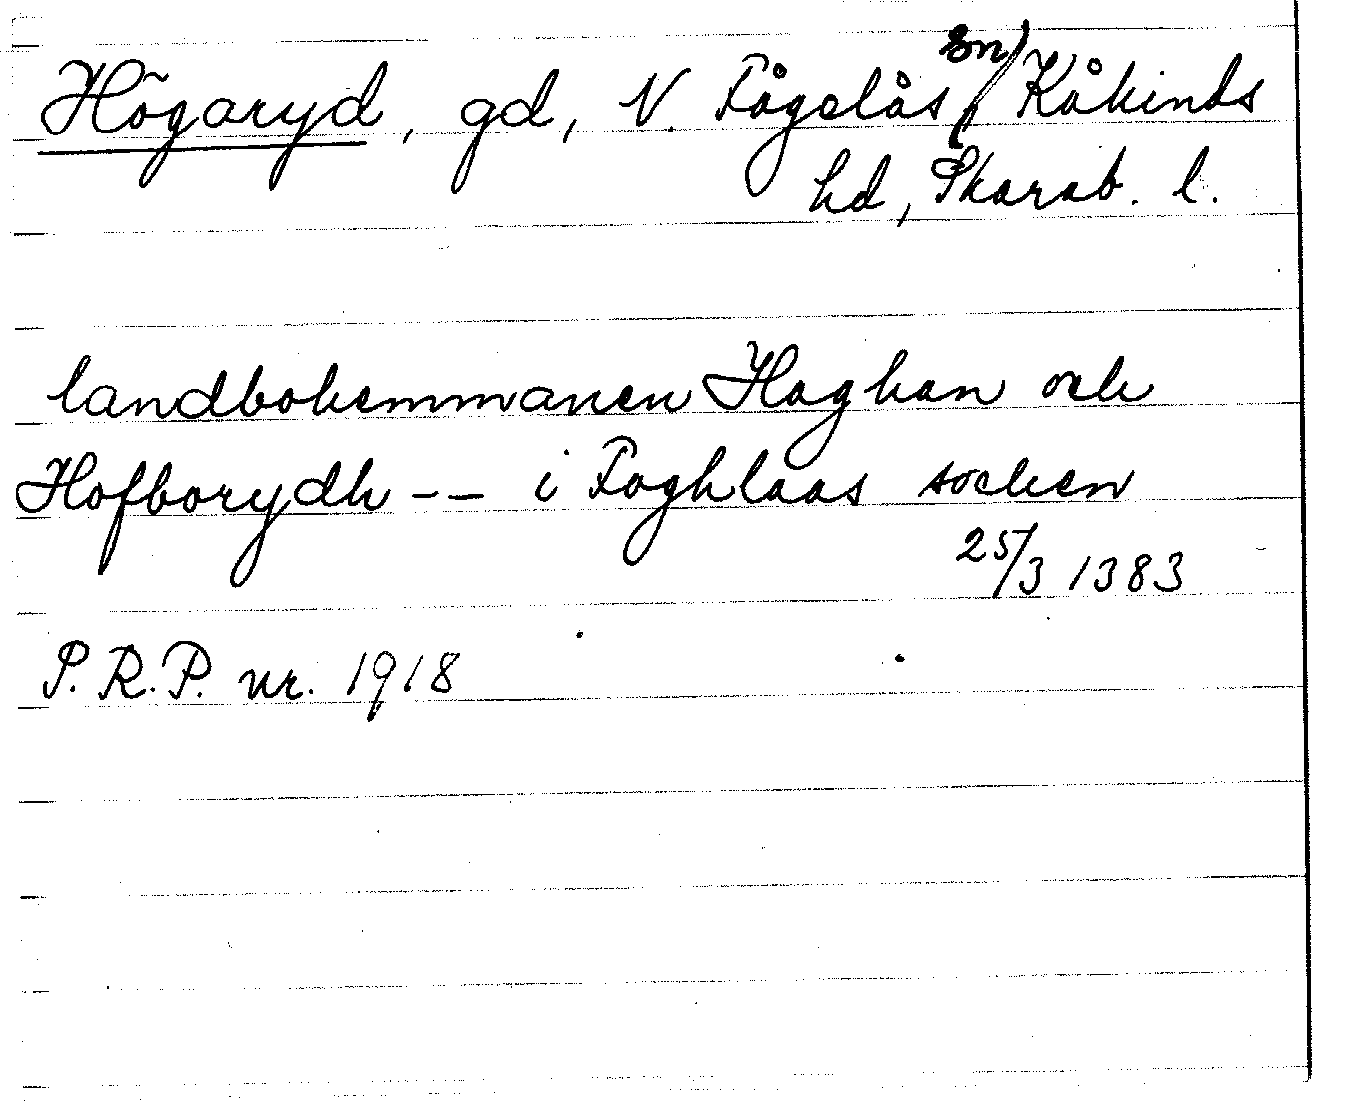 Högaryd, gd, N. Fågelås sn, Kåkinds
hd, Skarab. l.
landbohemmanen Haghan och
Hofborydh -- i Foghlaas socken
25/3 1383
P.R.P. nr. 1918